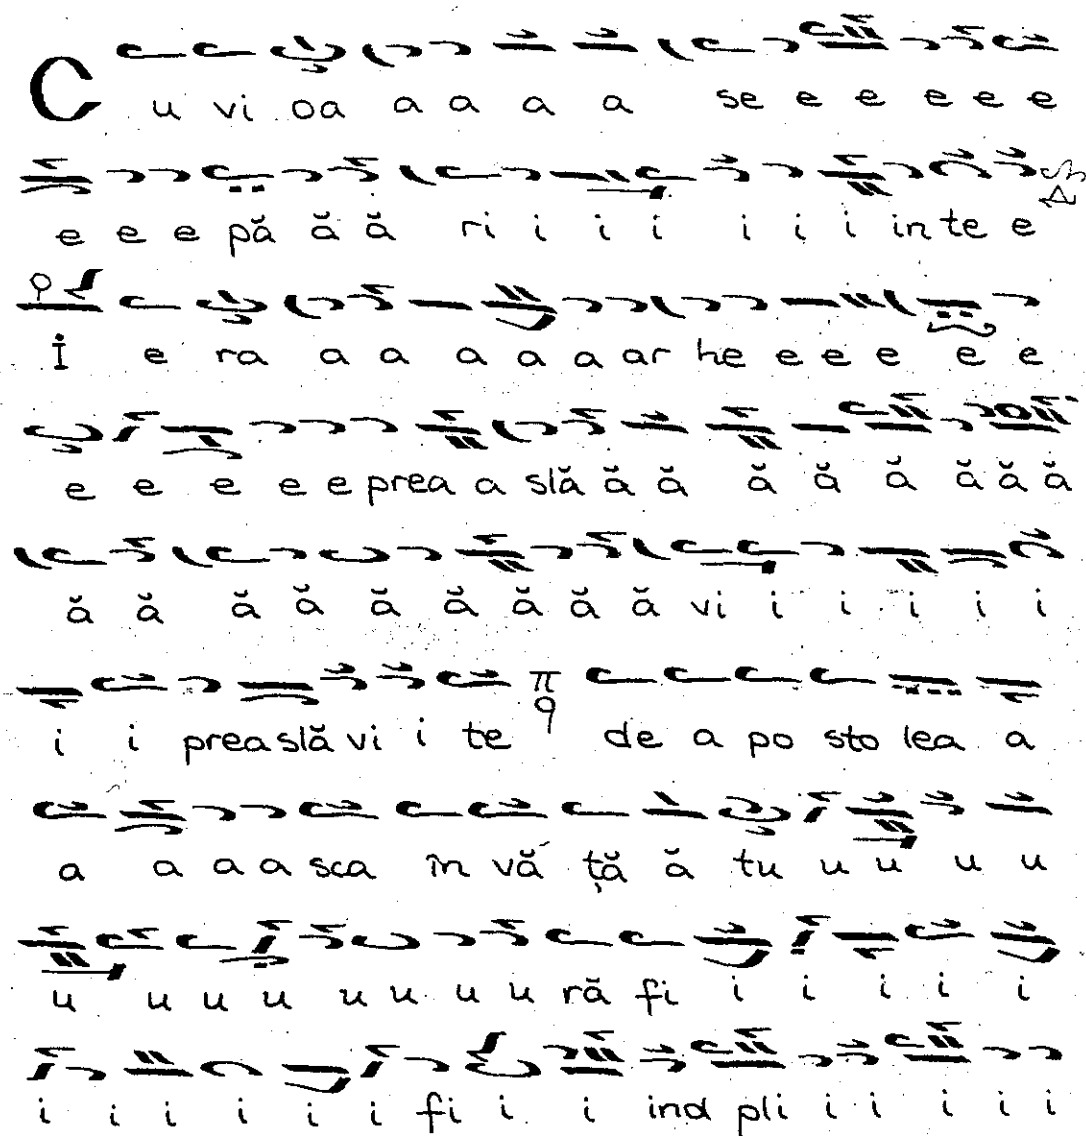 C u vi oa a a a a se e e e e e
e e e pă ă ă ri i i i i i i in te e
İ e ra a a a a a ar he e e e e e
e e e e e prea a slă ă ă ă ă ă ă ă ă
ă ă ă ă ă ă ă ă ă vi i i i i i
i i prea slă vi i te π q de a po sto lea a
a a a a sca în vă ță ă tu u u u u
u u u u u u u u ră fi i i i i i
i i i i i i fi i i ind pli i i i i i